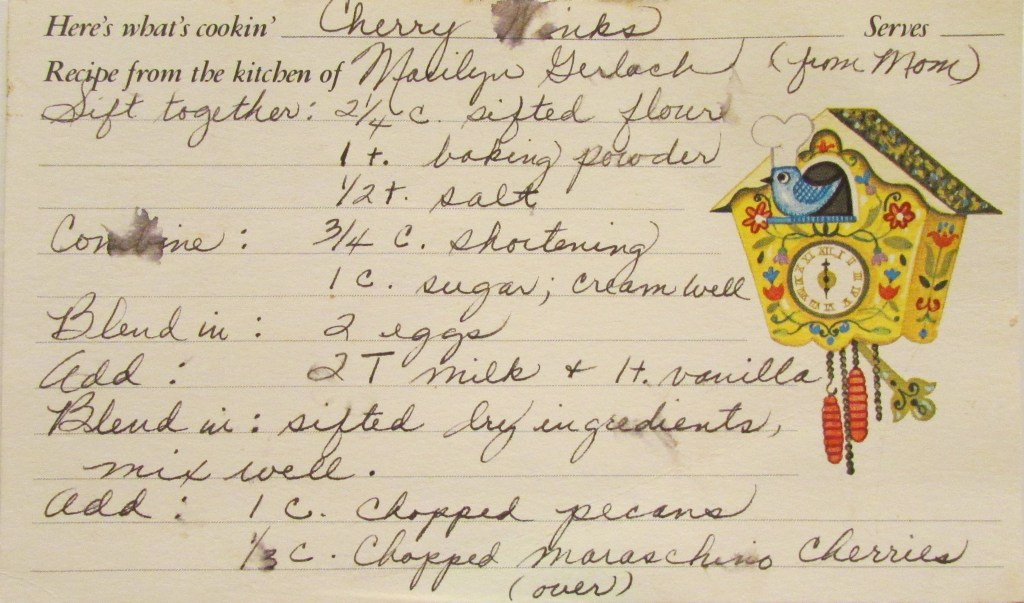 Here's what's cookin' Cherry Winks Serves
Recipe from the kitchen of Marilyn Gerlach (from Mom)
Sift together: 2 1/4 c. sifted flour
1 t. baking powder
1/2 t. salt
Combine: 3/4 c. shortening
1 c. sugar; cream well
Blend in: 2 eggs
Add: 2 T milk + 1 t. vanilla
Blend in: sifted dry ingredients,
mix well.
Add: 1 c. chopped pecans
1/3 c. chopped maraschino cherries
(over)